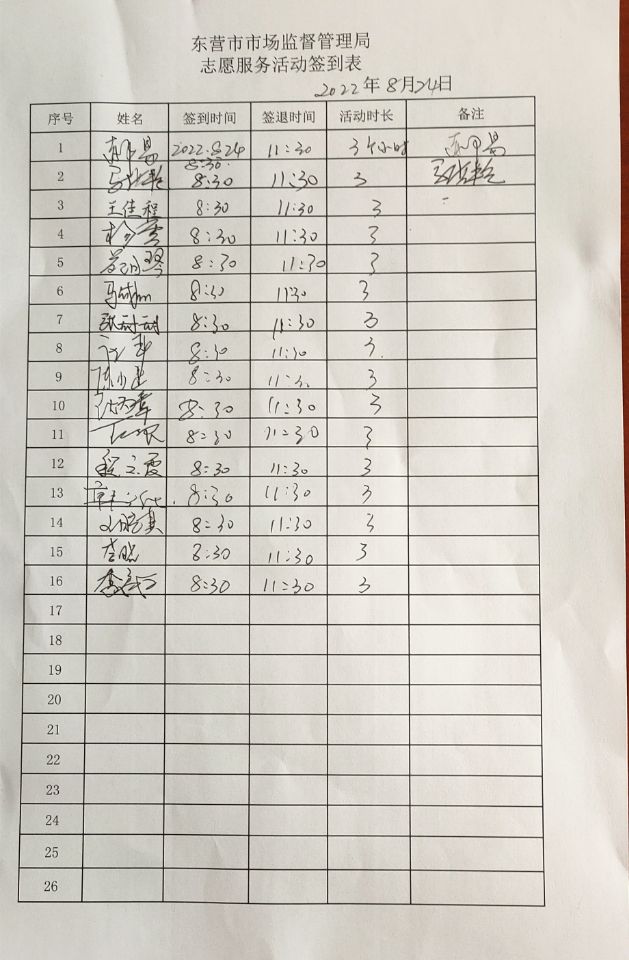 东营市市场监督管理局
志愿服务活动签到表
2022年8月24日
序号 姓名 签到时间 签退时间 活动时长 备注
1 2022.8.24 8:30 11:30 3个小时
2 8:30 11:30 3
3 王佳程 8:30 11:30 3
4 8:30 11:30 3
5 8:30 11:30 3
6 8:30 11:30 3
7 8:30 11:30 3
8 8:30 11:30 3
9 8:30 11:30 3
10 8:30 11:30 3
11 8:30 11:30 3
12 程立霞 8:30 11:30 3
13 8:30 11:30 3
14 8:30 11:30 3
15 李晓 8:30 11:30 3
16 8:30 11:30 3
17
18
19
20
21
22
23
24
25
26